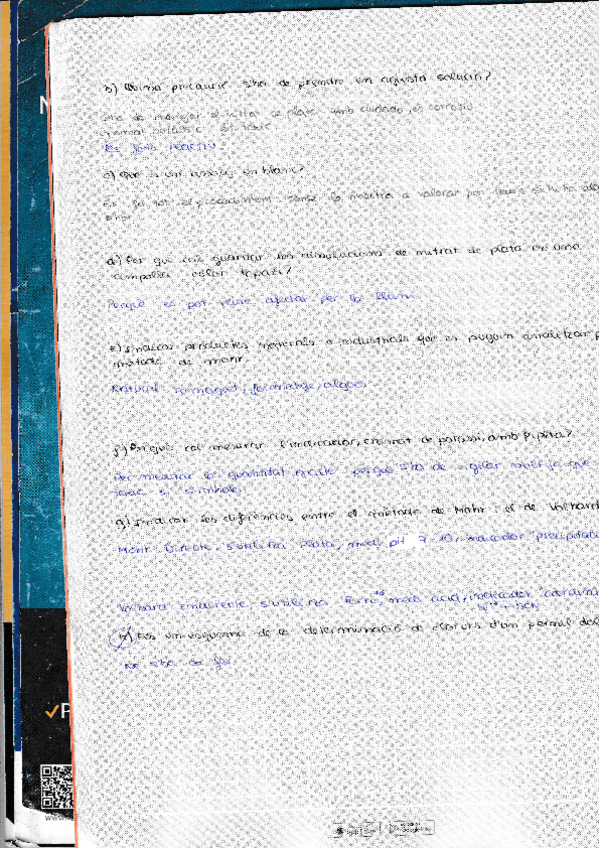 b) Quina precaució s'ha de prendre en aquesta solució?
S'ha de manejar el nitrat de plata amb cuidado, es corrosiu
cromat potàssic és tòxic
c) Què és un assaig en blanc?
Es fa tot el procediment sense la mostra a valorar per
error
d) Per què cal guardar les dissolucions de nitrat de plata en una
ampolla color topazi?
Perquè es pot veure afectar per la llum
e) Indicar productes naturals o industrials que es puguin analitzar p
mètode de Mohr
Natural: formatge, algues
f) Perquè cal mesurar l'indicador, cromat de potassi, amb pipeta?
Per mesurar la quantitat exacte perquè s'ha de vigilar molt ja que
tòxic si s'inhala
g) Indicar les diferències entre el mètode de Mohr i el de Volhard
Mohr: Directe, s'utilitza Plata, medi pH 7-10, indicador "precipitat
Volhard: s'utilitza Ferro medi àcid, indicador
h) Fes un esquema de la determinació de clorurs d'un pernil dol
No s'ha de fer